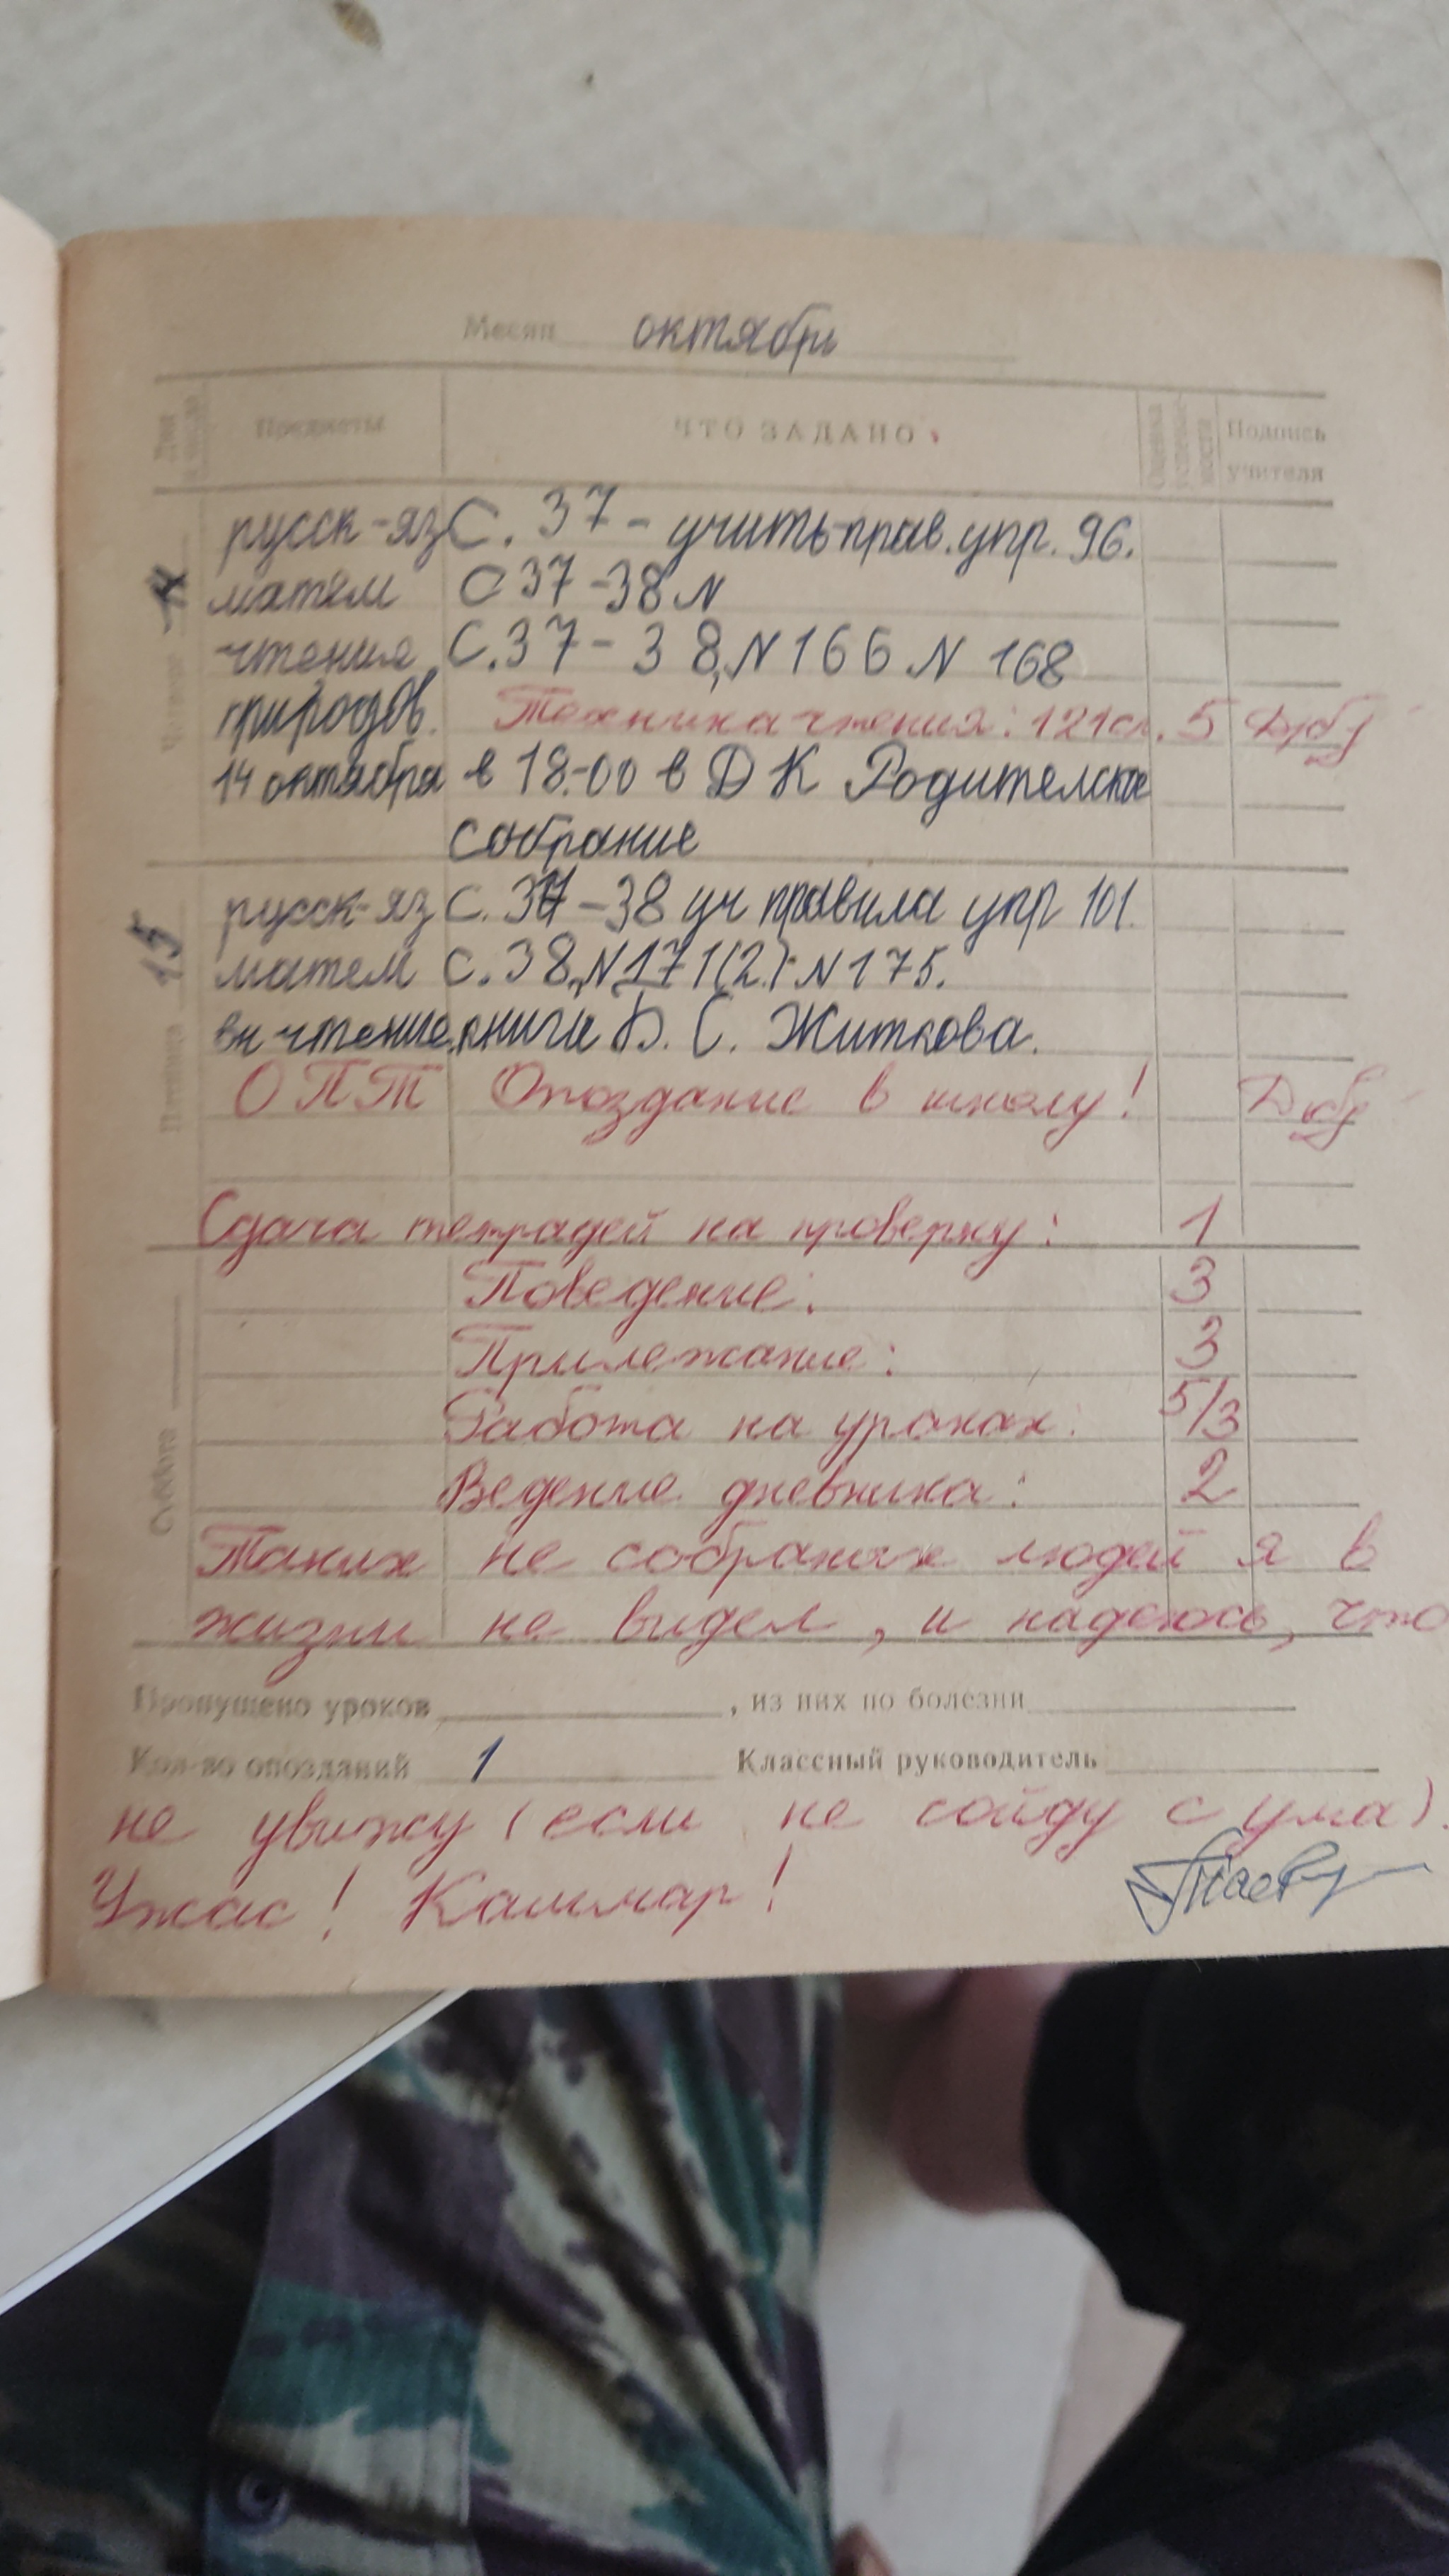 Месяц октябрь
Дни и число Предметы ЧТО ЗАДАНО Оценка успеваемости Подпись учителя
русск-яз С. 37 - учить прав. упр. 96.
матем С 37-38 N
чтение С. 37 - 38, N 166 N 168
природов. Техника чтения: 121 сл. 5
14 октября в 18.00 в ДК Родителское
собрание
Четверг 14
русск-яз С. 37-38 уч правила упр 101.
матем С. 38, N 171(2) N 175.
вн чтение книги Б. С. Житкова.
ОПТ Опоздание в школу!
Пятница 15
Сдача тетрадей на проверку: 1
Поведение: 3
Прилежание: 3
Работа на уроках: 5/3
Ведение дневника: 2
Суббота
Таких не собраных людей я в
жизни не видел, и надеюсь, что
Пропущено уроков , из них по болезни
Кол-во опозданий 1 Классный руководитель
не увижу (если не сойду с ума).
Ужас! Кашмар!